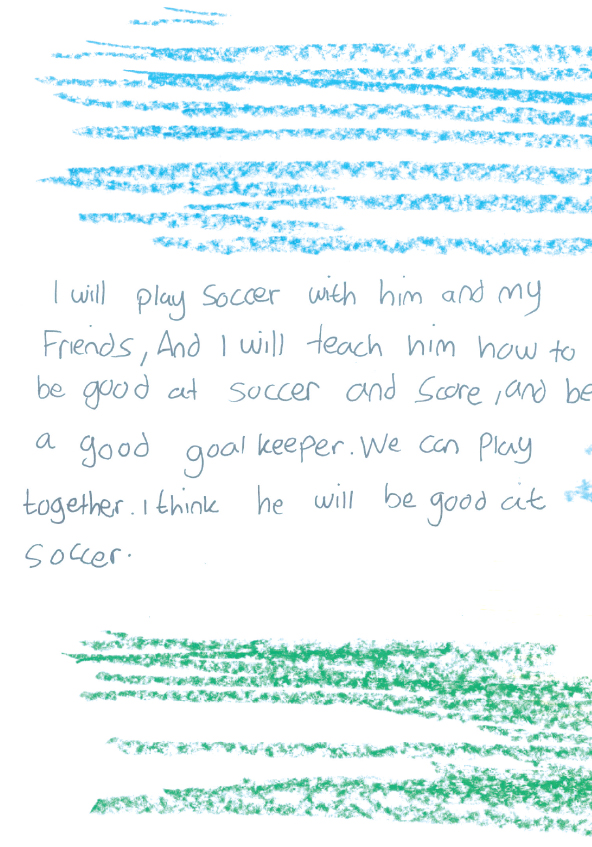 I will play Soccer with him and my
Friends, And I will teach him how to
be good at soccer and Score, and be
a good goal keeper. We can Play
together. I think he will be good at
soccer.